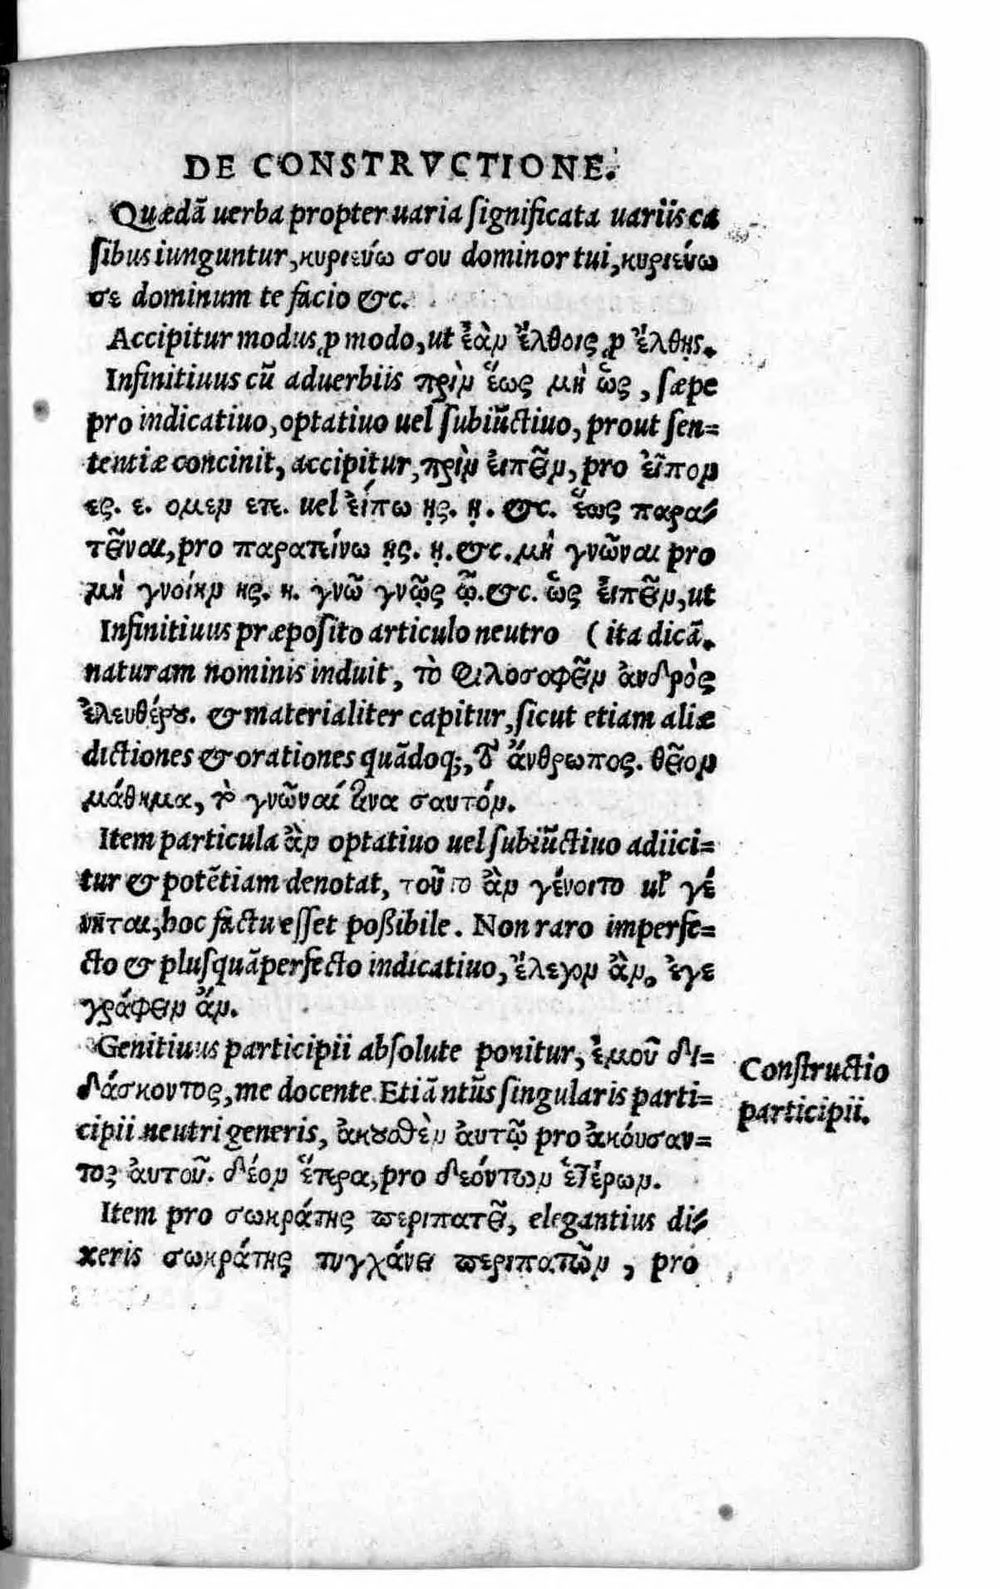 DE CONSTRVCTIONE.
Quædã uerba propter uaria ſignificata uariis ca
ſibus iunguntur, κυριεύω σου dominor tui, κυριεύω
σε dominum te facio &c.
Accipitur modus ꝓ modo, ut ἐὰν ἔλθοις ꝓ ἔλθης.
Infinitiuus cũ aduerbiis πρὶν ἕως μὴ ὡς, ſæpe
pro indicatiuo, optatiuo uel ſubiũctiuo, prout ſen=
tentiæ concinit, accipitur, πρὶν εἰπεῖν, pro εἶπον
ες. ε. ομεν ετε. uel εἴπω ῃς. ῃ. &c. ἕως παρα/
τεῖναι, pro παρατείνω ῃς. ῃ. &c. μὴ γνῶναι pro
μὴ γνοίην ης. η. γνῶ γνῷς ῷ. &c. ὡς εἰπεῖν, ut
Infinitiuus præpoſito articulo neutro (ita dicã.
naturam nominis induit, τὸ φιλοσοφεῖν ἀνδρὸς
ἐλευθέρου. & materialiter capitur, ſicut etiam aliæ
dictiones & orationes quãdoq;, τὸ ἄνθρωπος. θεῖον
μάθημα, τὸ γνῶναί τινα σαυτόν.
Item particula ἂν optatiuo uel ſubiũctiuo adiici=
tur & potẽtiam denotat, τοῦτο ἂν γένοιτο ul' γέ
νηται, hoc factu eſſet poßibile. Non raro imperfe=
cto & pluſquãperfecto indicatiuo, ἔλεγον ἂν. ἐγε
γράφειν ἄν.
Genitiuus participii abſolute ponitur, ἐμοῦ δι=
δάσκοντος, me docente. Etiã ntũs ſingularis parti=
cipii neutri generis, ἀκουσθὲν ἀυτῷ pro ἀκόυσαν=
τος ἀυτοῦ. δέον ἕτερα, pro δεόντων ἑτέρων.
Item pro σωκράτης περιπατεῖ, elegantius di/
xeris σωκράτης τυγχάνει περιπατῶν, pro
Conſtructio
participii.